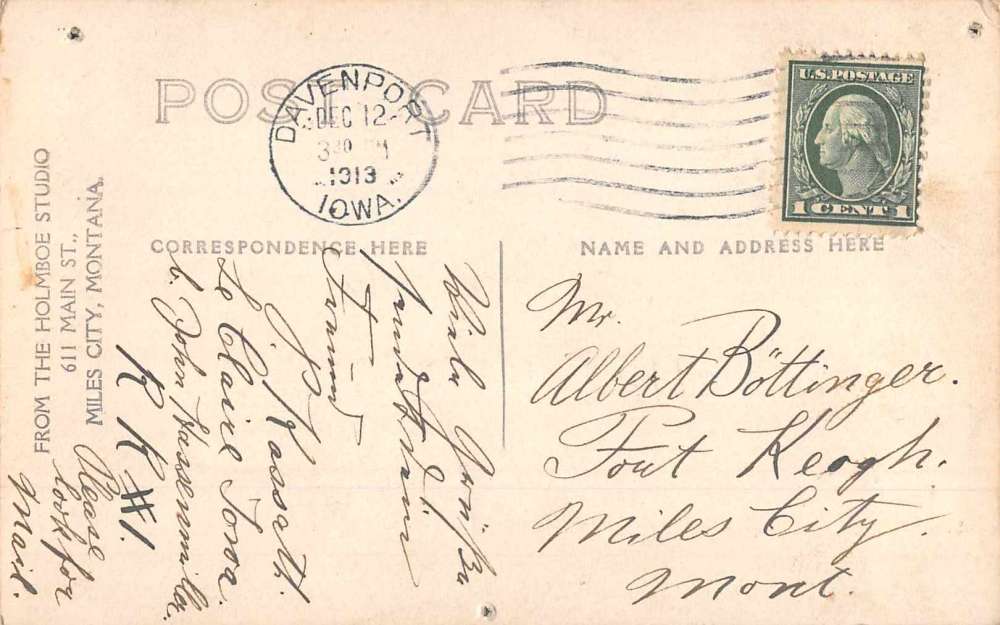 POST CARD
DAVENPORT
DEC 12
3 30 PM
1913
IOWA.
U.S. POSTAGE
1 CENT 1
FROM THE HOLMBOE STUDIO
611 MAIN ST.,
MILES CITY, MONTANA.
CORRESPONDENCE HERE
NAME AND ADDRESS HERE
Viele
Freund
J. Kassatt.
Le Claire Iowa.
b. John Hassenmiller.
R R #1.
Please
look for
Mail.
Mr.
Albert Böttinger.
Fort Keogh.
Miles City.
Mont.